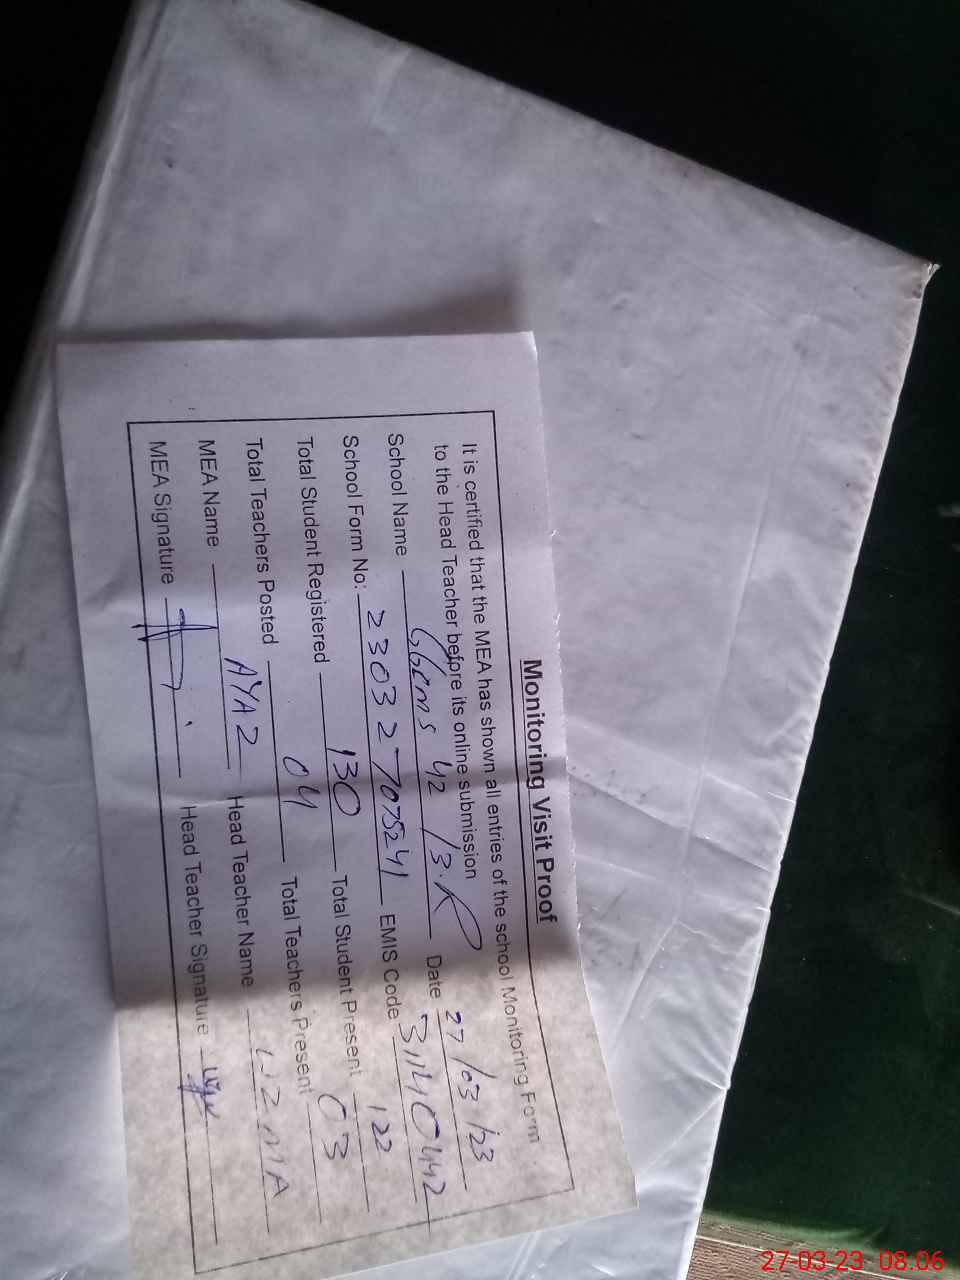 Monitoring Visit Proof
It is certified that the MEA has shown all entries of the school Monitoring Form
to the Head Teacher before its online submission
School Name GGEMS 42 /3.R Date 27/03/23
School Form No: 2303 2 7075241 EMIS Code 31140442
Total Student Registered 130 Total Student Present 122
Total Teachers Posted 04 Total Teachers Present 03
MEA Name AYAZ Head Teacher Name UZMA
MEA Signature Head Teacher Signature
27-03-23 08.06